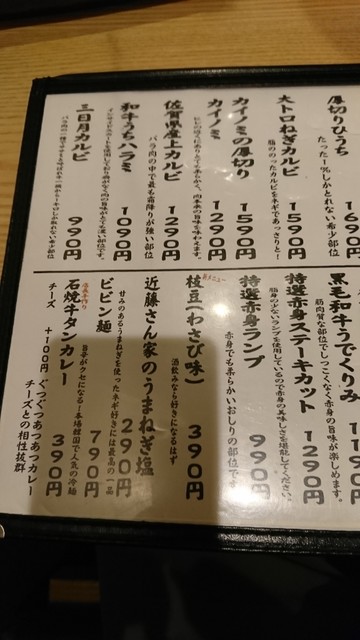 厚切りひうち
たった1%しかとれない希少部位
169
大トロねぎカルビ
脂ののったカルビをネギであっさりと!
1590円
カイノミの厚切り
1590円
カイノミ
1290円
佐賀県産上カルビ
バラ肉の中で最も霜降りが強い部位
1290円
和牛うちハラミ
1090円
三日月カルビ
990円
黒毛和牛うでくりみ
筋肉質な部位でしつこくなく赤身の旨味が楽しめます。
特選赤身ステーキカット
脂身の少ないランプを使用しているので赤身の美味しさを堪能してください。
1290円
特選赤身ランプ
赤身でも柔らかいおしりの部位です
990円
新メニュー
枝豆(わさび味)
酒飲みなら好きになるはず
390円
近藤さん家のうまねぎ塩
甘みのあるうまねぎを使ったネギ好きには最高の一品
290円
ビビン麺
旨辛がクセになる!本場韓国で人気の冷麺
790円
石焼牛タンカレー
390円
ぐつぐつあつあつカレー
チーズ +100円
チーズとの相性抜群